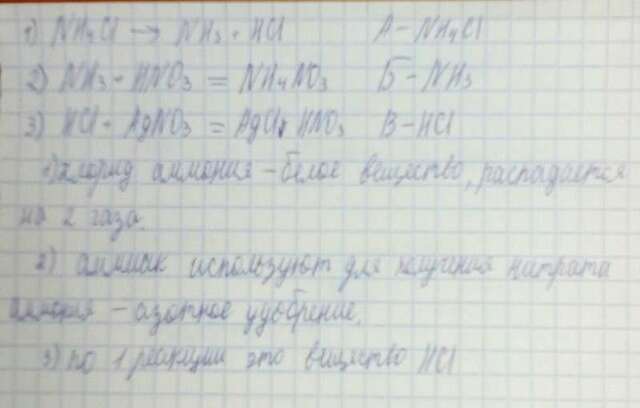 1) NH4Cl → NH3 + HCl А - NH4Cl
2) NH3 + HNO3 = NH4NO3 Б - NH3
3) HCl + AgNO3 = AgCl + HNO3 В - HCl
1) хлорид аммония - белое вещество, распадается
на 2 газа.
2) аммиак используют для получения нитрата
аммония - азотное удобрение.
3) по 1 реакции это вещество HCl